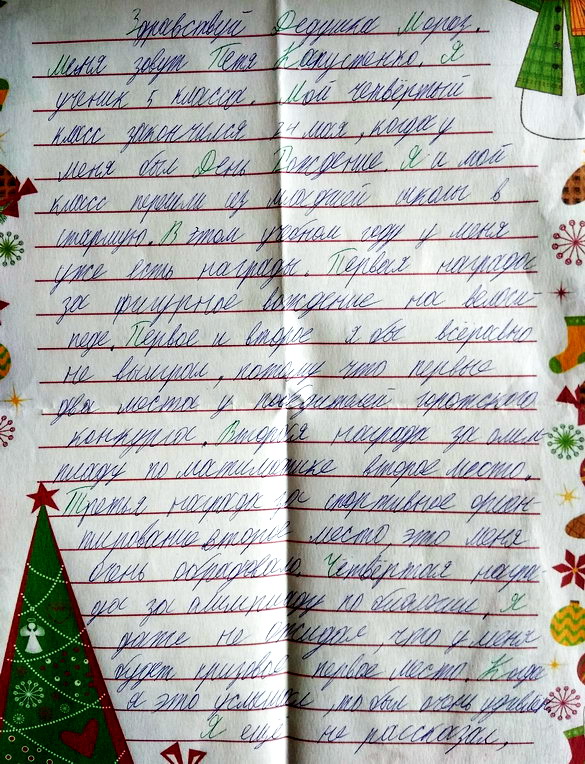 Здравствуй Дедушка Мороз.
Меня зовут Петя Капустенко. Я
ученик 5 класса. Мой четвёртый
класс закончился 24 мая, когда у
меня был День Рождение. Я и мой
класс перешли из младшей школы в
старшую. В этом учебном году у меня
уже есть награды. Первая награда
за фигурное вождение на велоси-
педе. Первое и второе я бы всёравно
не выиграл, потому что первые
два места у победителей городского
конкурса. Вторая награда за олим-
пиаду по математике второе место.
Третья награда за спортивное ориен-
тирование второе место, это меня
очень обрадовало. Четвёртая награ-
да за олимпиаду по биологии, Я
даже не ожидал, что у меня
будет призовое первое место. Когда
я это услышал, то был очень удивлён.
Я ещё не рассказал,